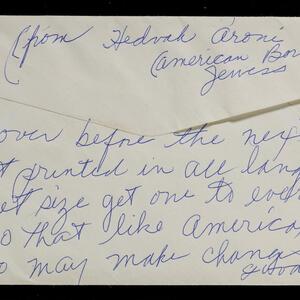 from Hedvah Aroni
American Bor
Jewess
over before the nex
t printed in all lang
et size get one to eve
o that like America
o may make chang